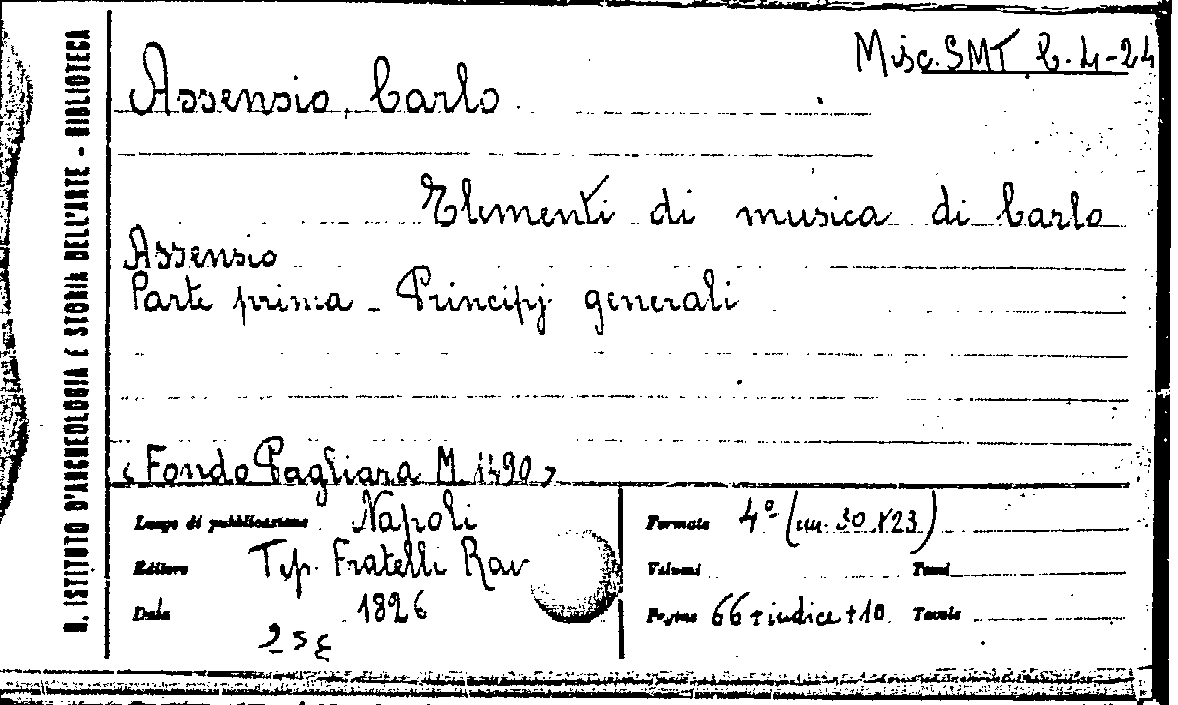 R. ISTITUTO D'ARCHEOLOGIA E STORIA DELL'ARTE - BIBLIOTECA
Misc. SMT C. 4-24
Assensio, Carlo
Elementi di musica di Carlo
Assensio
Parte prima - Principj generali
<Fondo Pagliara M. 1490>
Luogo di pubblicazione Napoli
Editore Tip. Fratelli
Data 1826
Formato 4º (cm. 30 x 23)
Volumi Tomi
Pagine 66 + indice + 10 Tavole